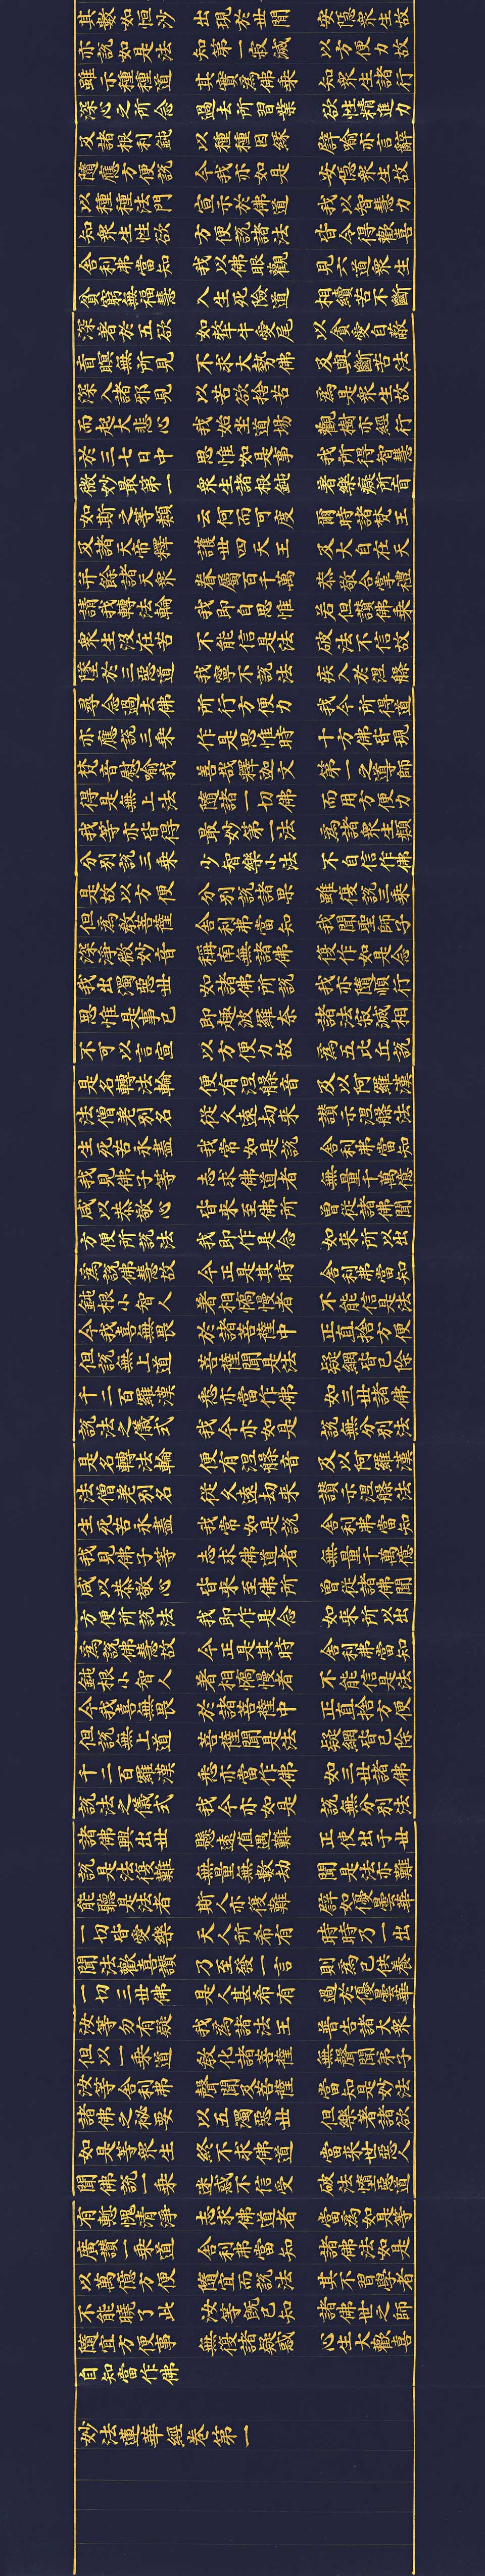 其數如恒沙 出現於世間 安隱衆生故
亦說如是法 知第一寂滅 以方便力故
雖示種種道 其實為佛乘 知衆生諸行
深心之所念 過去所習業 欲性精進力
及諸根利鈍 以種種因緣 譬喻亦言辭
隨應方便說 今我亦如是 安隱衆生故
以種種法門 宣示於佛道 我以智慧力
知衆生性欲 方便說諸法 皆令得歡喜
舍利弗當知 我以佛眼觀 見六道衆生
貧窮無福慧 入生死險道 相續苦不斷
深著於五欲 如犛牛愛尾 以貪愛自蔽
盲瞑無所見 不求大勢佛 及與斷苦法
深入諸邪見 以苦欲捨苦 為是衆生故
而起大悲心 我始坐道場 觀樹亦經行
於三七日中 思惟如是事 我所得智慧
微妙最第一 衆生諸根鈍 著樂癡所盲
如斯之等類 云何而可度 爾時諸梵王
及諸天帝釋 護世四天王 及大自在天
并餘諸天衆 眷屬百千萬 恭敬合掌禮
請我轉法輪 我即自思惟 若但讚佛乘
衆生沒在苦 不能信是法 破法不信故
墜於三惡道 我寧不說法 疾入於涅槃
尋念過去佛 所行方便力 我今所得道
亦應說三乘 作是思惟時 十方佛皆現
梵音慰喻我 善哉釋迦文 第一之導師
得是無上法 隨諸一切佛 而用方便力
我等亦皆得 最妙第一法 為諸衆生類
分別說三乘 少智樂小法 不自信作佛
是故以方便 分別說諸果 雖復說三乘
但為教菩薩 舍利弗當知 我聞聖師子
深淨微妙音 稱南無諸佛 復作如是念
我出濁惡世 如諸佛所說 我亦隨順行
思惟是事已 即趣波羅奈 諸法寂滅相
不可以言宣 以方便力故 為五比丘說
是名轉法輪 便有涅槃音 及以阿羅漢
法僧差別名 從久遠劫來 讚示涅槃法
生死苦永盡 我常如是說 舍利弗當知
我見佛子等 志求佛道者 無量千萬億
咸以恭敬心 皆來至佛所 曾從諸佛聞
方便所說法 我即作是念 如來所以出
為說佛慧故 今正是其時 舍利弗當知
鈍根小智人 著相憍慢者 不能信是法
今我喜無畏 於諸菩薩中 正直捨方便
但說無上道 菩薩聞是法 疑網皆已除
千二百羅漢 悉亦當作佛 如三世諸佛
說法之儀式 我今亦如是 說無分別法
是名轉法輪 便有涅槃音 及以阿羅漢
法僧差別名 從久遠劫來 讚示涅槃法
生死苦永盡 我常如是說 舍利弗當知
我見佛子等 志求佛道者 無量千萬億
咸以恭敬心 皆來至佛所 曾從諸佛聞
方便所說法 我即作是念 如來所以出
為說佛慧故 今正是其時 舍利弗當知
鈍根小智人 著相憍慢者 不能信是法
今我喜無畏 於諸菩薩中 正直捨方便
但說無上道 菩薩聞是法 疑網皆已除
千二百羅漢 悉亦當作佛 如三世諸佛
說法之儀式 我今亦如是 說無分別法
諸佛興出世 懸遠值遇難 正使出于世
說是法復難 無量無數劫 聞是法亦難
能聽是法者 斯人亦復難 譬如優曇華
一切皆愛樂 天人所希有 時時乃一出
聞法歡喜讚 乃至發一言 則為已供養
一切三世佛 是人甚希有 過於優曇華
汝等勿有疑 我為諸法王 普告諸大衆
但以一乘道 教化諸菩薩 無聲聞弟子
汝等舍利弗 聲聞及菩薩 當知是妙法
諸佛之秘要 以五濁惡世 但樂著諸欲
如是等衆生 終不求佛道 當來世惡人
聞佛說一乘 迷惑不信受 破法墮惡道
有慙愧清淨 志求佛道者 當為如是等
廣讚一乘道 舍利弗當知 諸佛法如是
以萬億方便 隨宜而說法 其不習學者
不能曉了此 汝等既已知 諸佛世之師
隨宜方便事 無復諸疑惑 心生大歡喜
自知當作佛
妙法蓮華經卷第一